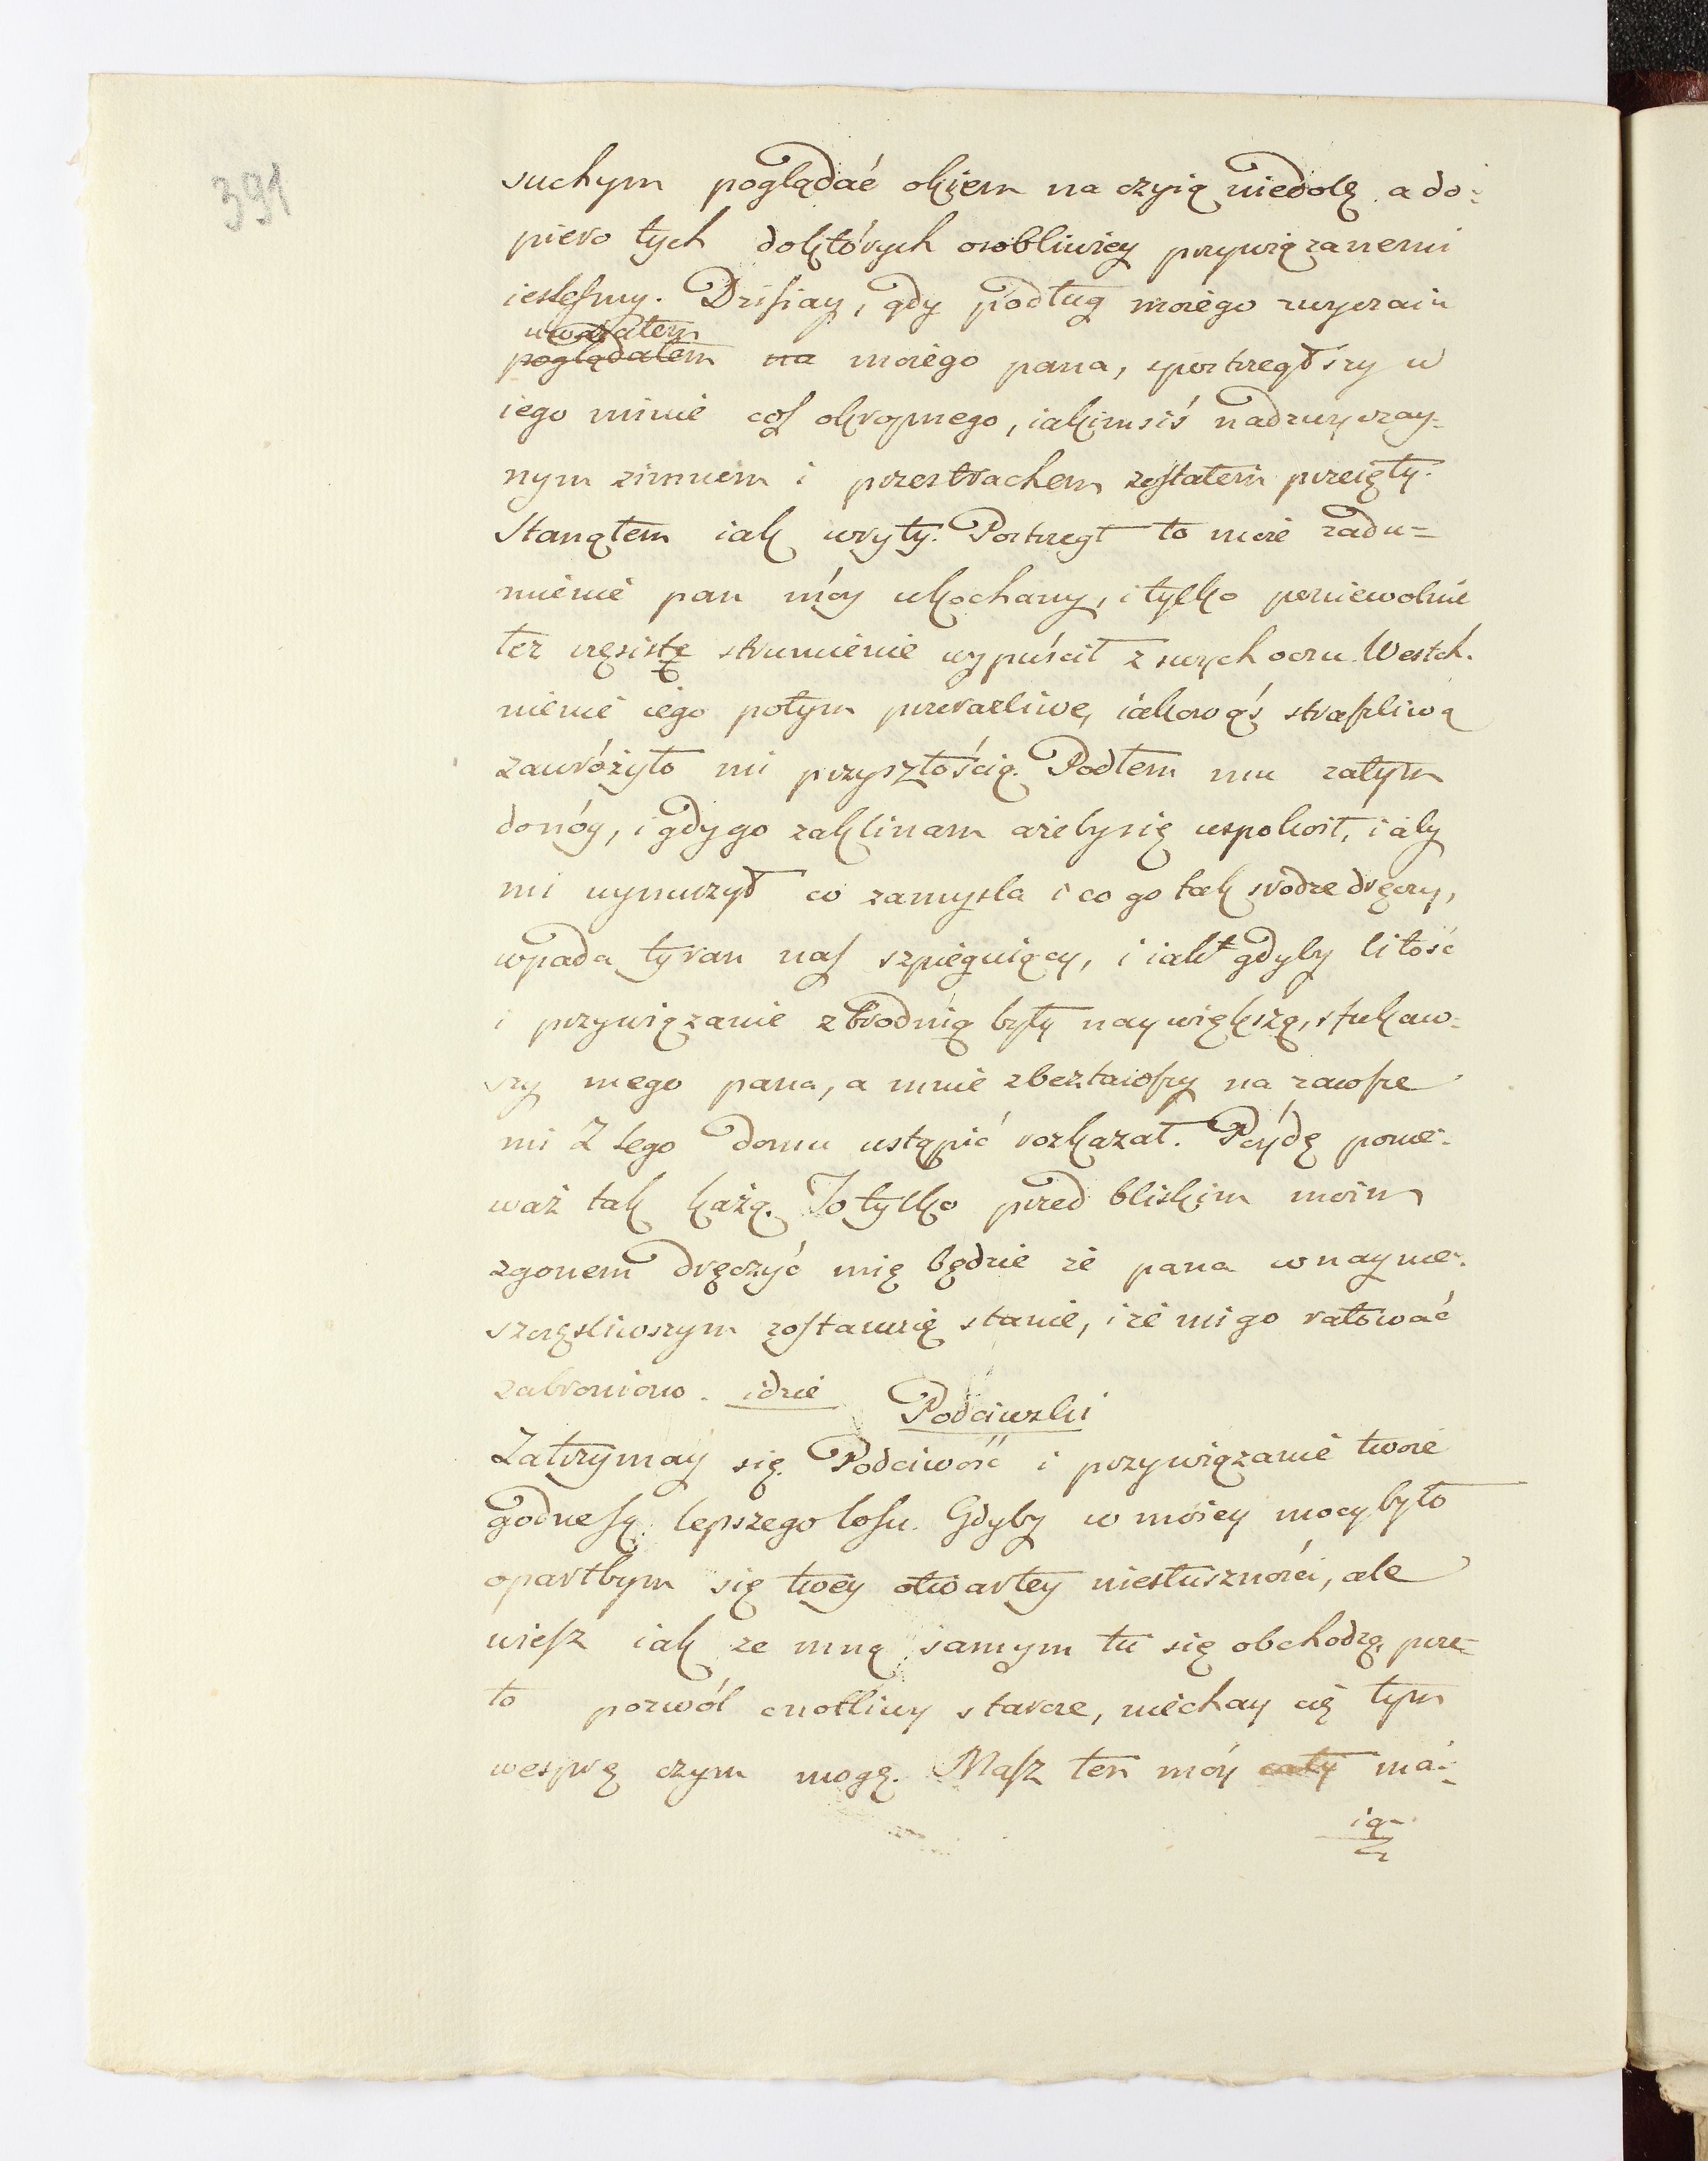 391
suchym poglądać okiem na czyią niedolę a do-
piero tych doktórych osobliwiey przywiązanemi
iesteſmy. Dziſiay, gdy podług moiego zwyczaiu
uważałem
poglądałem na moiego pana, spostrzegłszy w
iego minie coſ okropnego, iakimsiś nadzwyczay-
nym zimnem i przestrachem zoſtałem przeięty.
Stanąłem iak wryty. Postrzegł to moie zadu-
mienie pan móy ukochany, i tylko poniewolnie
łez rzęsistę strumienie wypuścił z swych oczu. Westch-
nienie iego potym przeraźliwe, iakowąś straſzliwą
zawróżyło mi przyszłością. Padłem mu zatym
donóg, i gdy go zaklinam ażeby się uspokoił, i aby
mi wynurzył co zamysla i co go tak srodze dręczy,
wpada tyran naſ szpieguiący, i iak gdyby litość
i przywiązanie zbrodnią były naywiększą, sfukaw-
szy mego pana, a mnie zbeztawſzy na zawſze
mi z tego domu ustąpić rozkazał. Póydę ponie-
waż tak każą. To tylko przed bliskim moim
zgonem dręczyć mię będzie że pana w naynie-
szczęsliwszym zoſtawię stanie, i że mi go ratować
zabroniono. idzie
Podciwski
Zatrzymay się. Podciwość i przywiązanie twoie
godne ſą lepszego loſu. Gdyby w moiey mocy było
oparłbym się twéy otwartey niesłuszności, ale
wieſz iak ze mną samym tu się obchodzą, prze-
to pozwól cnotliwy starcze, niechay cię tym
wesprę czym mogę. Maſz ten móy cały ma-
ią-